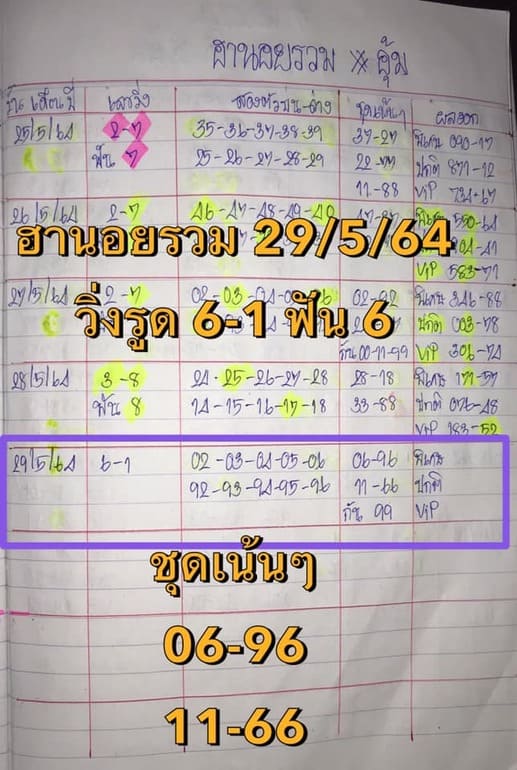 ฮานอยรวม ※ อุ้ม
วัน เดือน ปี เลขวิ่ง สองตัวบน-ล่าง ชุดเน้นๆ ผลออก
25/5/64 2-7 35-36-37-38-39 37-27 พิเศษ 090-17
ฟัน 7 25-26-27-28-29 22-77 ปกติ 871-12
11-88 VIP 734-67
26/5/64 2-7 46-47-48-49-40
ฮานอยรวม 29/5/64
VIP 583-71
27/5/64 2-7 02-03 02-92 พิเศษ 346-88
วิ่งรูด 6-1 ฟัน 6
ปกติ 003-78
กัน 00-11-99 VIP 306-74
28/5/64 3-8 24-25-26-27-28 28-18 พิเศษ 171-57
ฟัน 8 14-15-16-17-18 33-88 ปกติ 076-48
VIP 183-52
29/5/64 6-1 02-03-04-05-06 06-96 พิเศษ
92-93-94-95-96 11-66 ปกติ
กัน 99 VIP
ชุดเน้นๆ
06-96
11-66